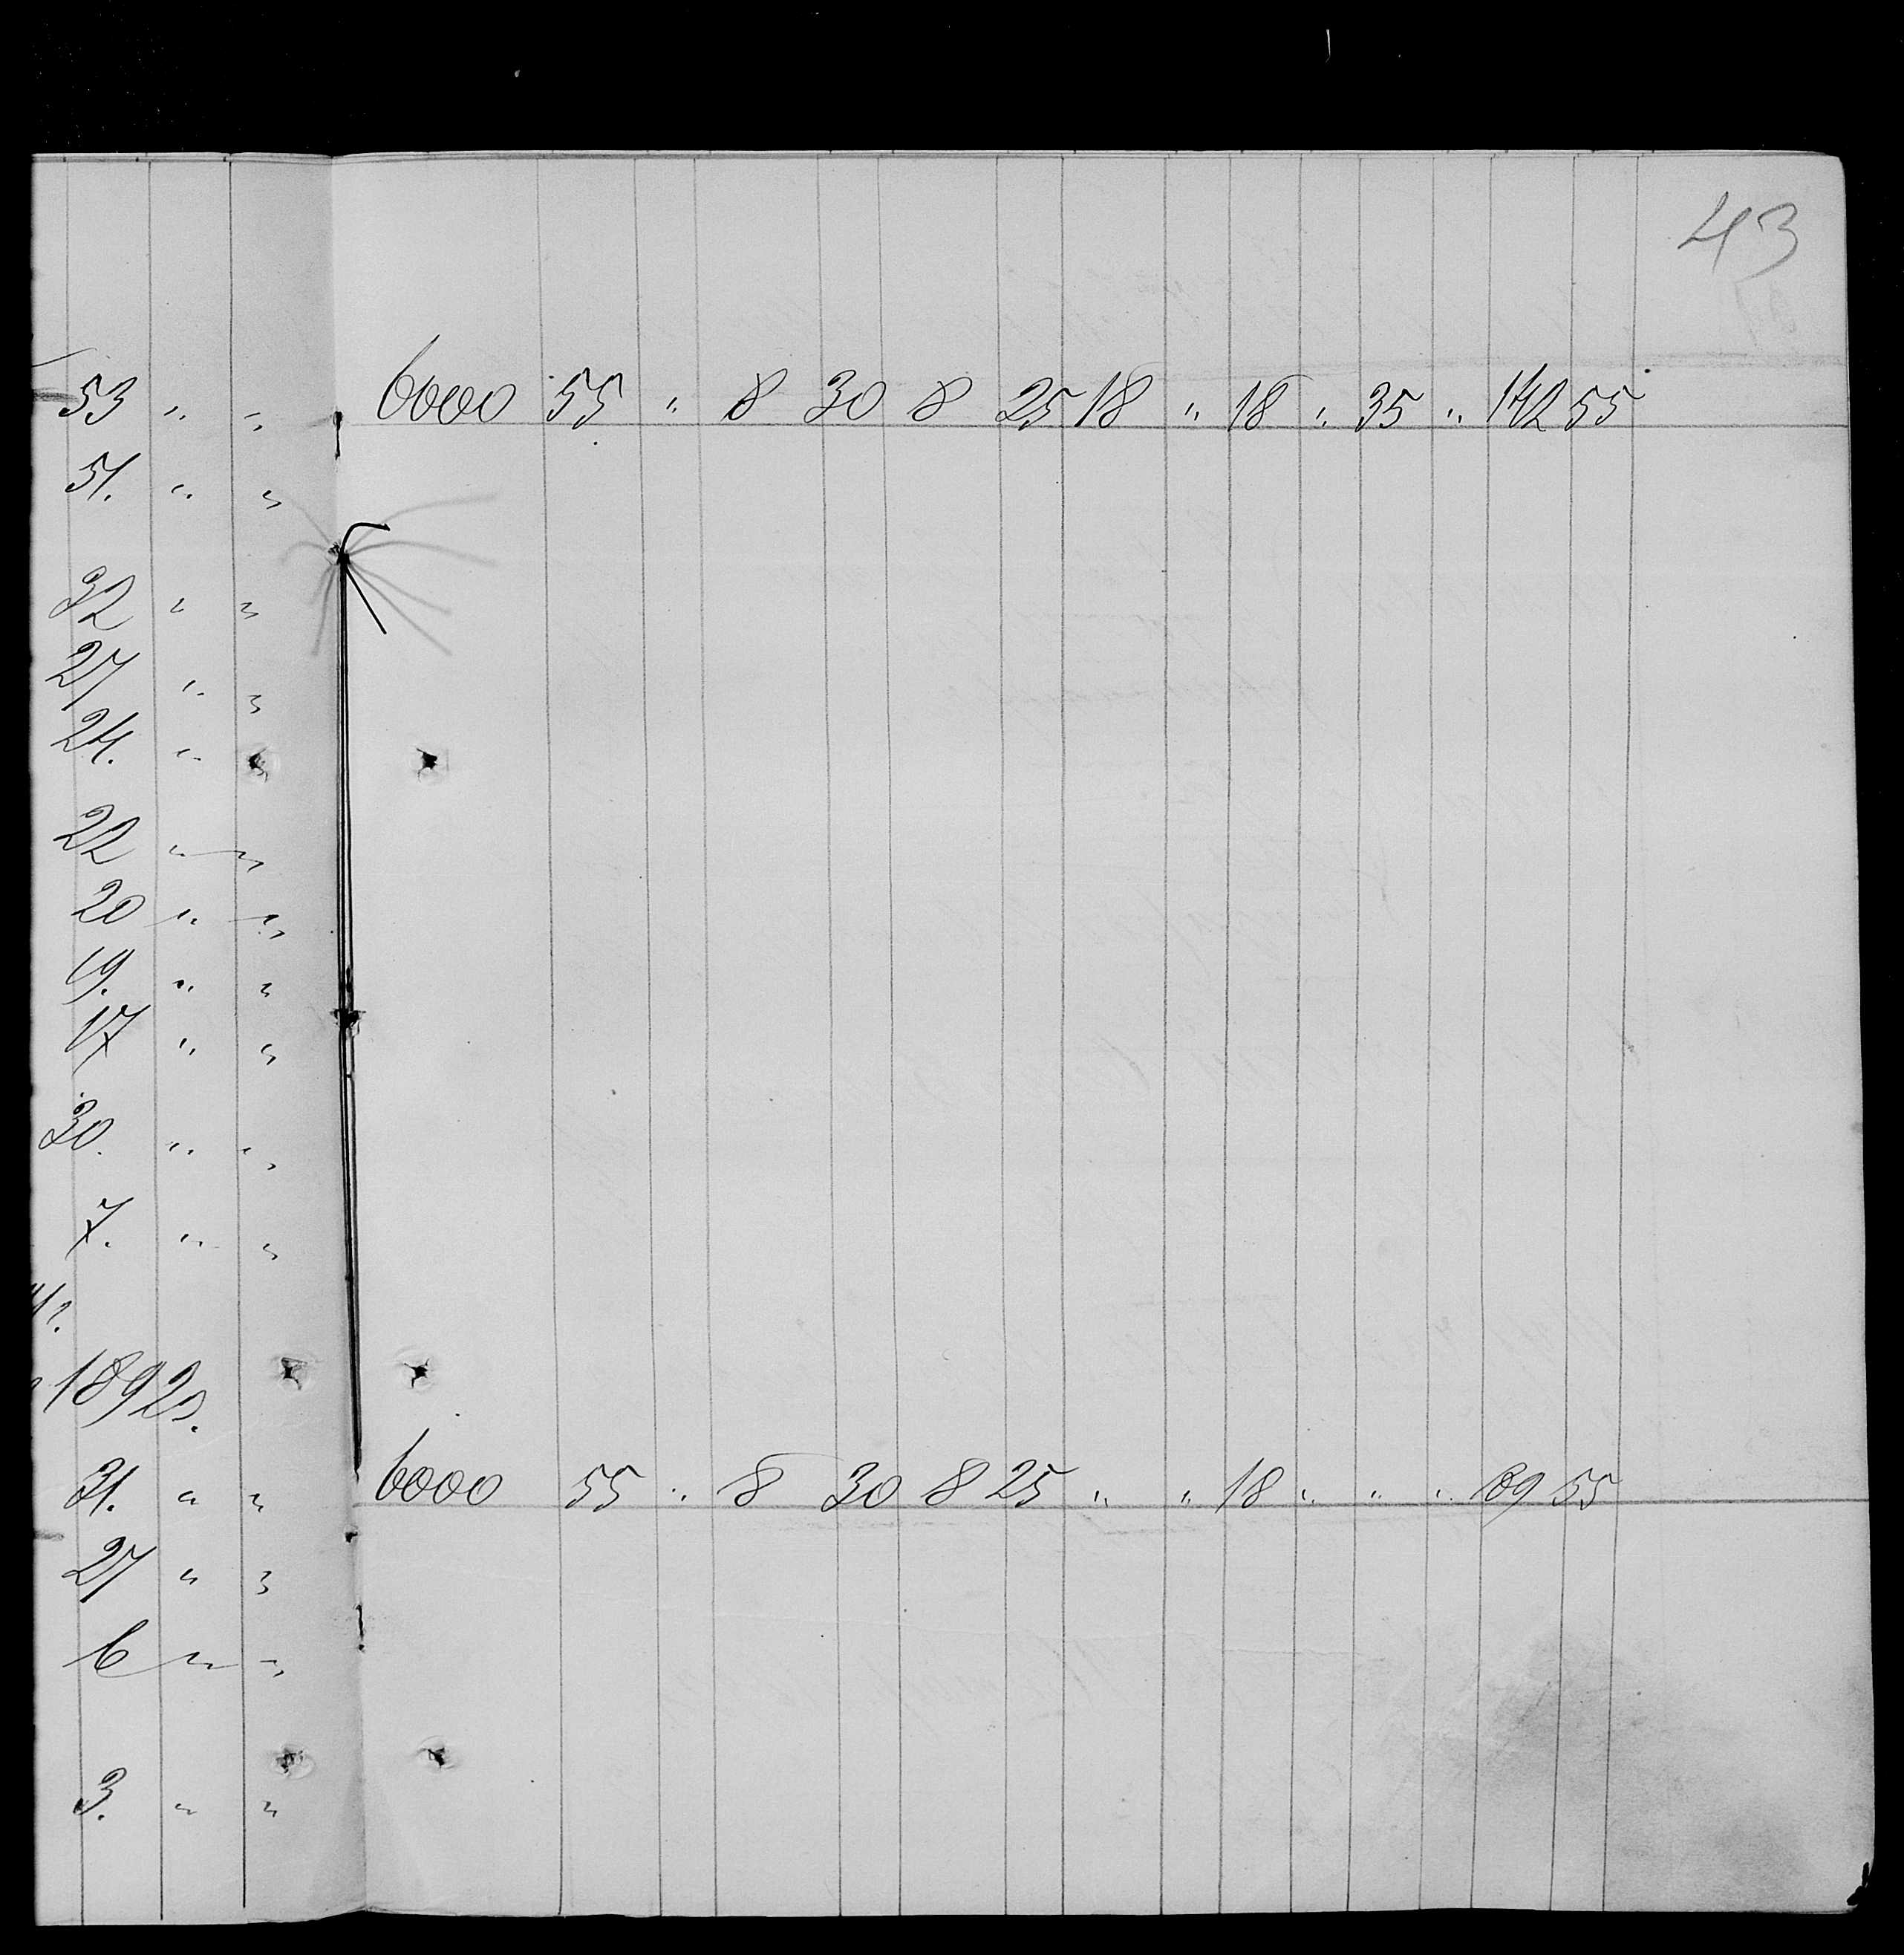 43
53 " "
6000 55 " 8 30 8 25 18 " 18 " 35 " 142 55
51. " "
32 " "
27 " "
24. " "
22 " "
20 " "
19. " "
17 " "
30. " "
7. " "
1892г.
31. " "
6000 55 " 8 30 8 25 " " 18 " " " 89 55
27 " "
6 " "
3. " "